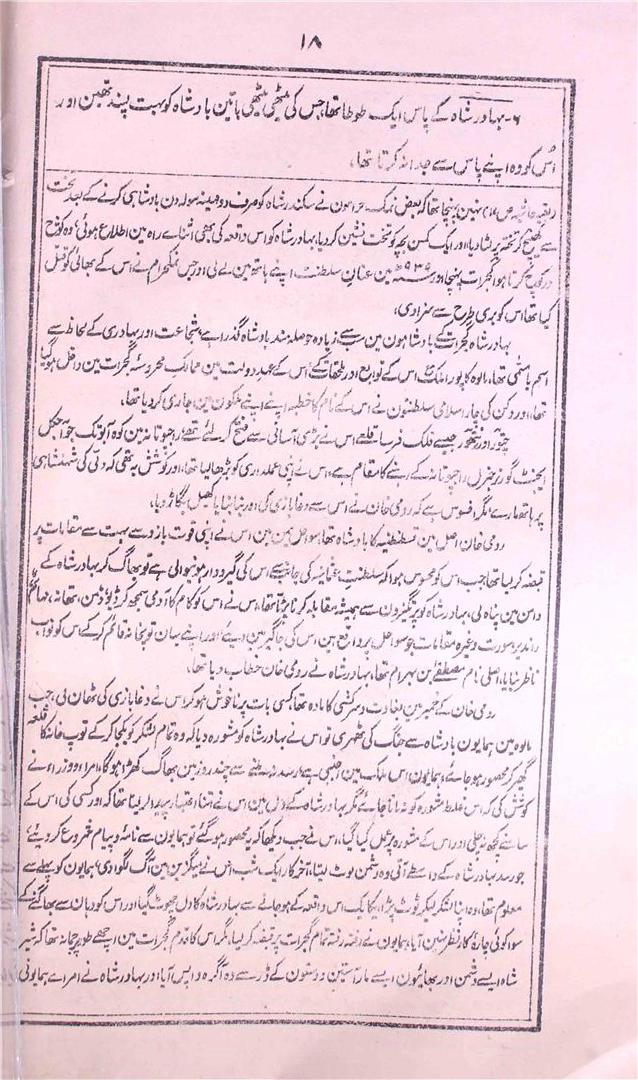 ۱۸
۶- بہادر شاہ کے پاس ایک طوطا تھا، جس کی میٹھی میٹھی باتین بادشاہ کو بہت پسند تھین اور
اُس کو وہ اپنے پاس سے جدا نہ کرتا تھا،
(بقیہ حاشیہ ص ۱۷) نہین پہنچا تھا کہ بعض نمک حرامون نے سکندر شاہ کو صرف دو مہینہ سولہ دن بادشاہی کرنے کے بعد تخت
سے کھینچ کر تختہ پر لٹا دیا، اور ایک کمسن بچہ کو تخت نشین کر دیا، بہادر شاہ کو اس واقعہ کی بھی اثنائے راہ مین اطلاع ہوئی، وہ کوچ
در کوچ کرتا ہوا گجرات پہنچا اور مین عنانِ سلطنت اپنے ہاتھ مین لے لی اور جس نمکحرام نے اس کے بھائی کو قتل
کیا تھا اس کو بری طرح سے سزا دی،
بہادر شاہ گجرات کے بادشاہون مین سب سے زیادہ حوصلہ مند بادشاہ گذرا ہے، شجاعت اور بہادری کے لحاظ سے
اسم بامسمٰی تھا، مالوہ کا پورا ملک مع اس کے توابع اور ملحقات کے اس کے عہدِ دولت مین ممالک محروسۂ گجرات مین داخل ہوگیا
تھا، اور دکن کی چار اسلامی سلطنتون نے اس کے نام کا خطبہ اپنے اپنے ملکون مین جاری کر دیا تھا،
چتور اور رنتھنبور جیسے فلک فرسا قلعے اس نے بڑی آسانی سے فتح کر لئے تھے، راجپوتانہ مین کوہ آبو تک جو آجکل
ایجنٹ گورنر جنرل راجپوتانہ کے رہنے کا مقام ہے، اس نے اپنی عملداری کو بڑھا لیا تھا، اور کوشش یہ تھی کہ دلی کی شہنشاہی
پر ہاتھ مارے، مگر افسوس ہے کہ رومی خان نے اس سے دغابازی کی اور بنا بنایا کھیل بگاڑ دیا،
رومی خان اصل مین قسطنطنیہ کا بادشاہ تھا، سواحل یمن مین اس نے اپنی قوت بازو سے بہت سے مقامات پر
قبضہ کر لیا تھا، جب اس کو محسوس ہوا کہ سلطنت عثمانیہ کی جانب سے اس کی گیر و دار ہونیوالی ہے تو بھاگ کر بہادر شاہ کے
دامن مین پناہ لی، بہادر شاہ کو پرتگیزون سے ہمیشہ مقابلہ کرنا پڑتا تھا، اس نے اس کو کام کا آدمی سمجھ کر ڈیو، دمن، تھانہ، مہائم
راندیر، سورت وغیرہ مقامات جو سواحل پر واقع ہین اس کی جاگیر مین دیئے، اور اپنے یہان توپخانہ قائم کر کے اس کو نواب
ناظر بنایا، اصلی نام مصطفٰے بن بہرام تھا، بہادر شاہ نے رومی خان خطاب دیا تھا،
رومی خان کے خمیر مین بغاوت و سرکشی کا مادہ تھا، کسی بات پر ناخوش ہو کر اس نے دغابازی کی ٹھان لی، جب
مالوہ مین ہمایون بادشاہ سے جنگ کی ٹھہری تو اس نے بہادر شاہ کو مشورہ دیا کہ وہ تمام لشکر کو یکجا کر کے توپ خانہ کا قلعہ
گھیر کر محصور ہو جائے، ہمایون اس ملک مین اجنبی ہے، رسد نہ ملنے سے چند روز مین بھاگ کھڑا ہوگا، امرا و وزرا نے
کوشش کی کہ اس غلط مشورہ کو نہ مانا جائے مگر بہادر شاہ کے دل مین اس نے اتنا اعتبار پیدا کر لیا تھا کہ اور کسی کی اس کے
سامنے کچھ نہ چلی اور اس کے مشورہ پر عمل کیا گیا، اس نے جب دیکھا کہ یہ محصور ہوگئے تو ہمایون سے نامہ و پیام شروع کر دیئے،
جو رسد بہادر شاہ کے واسطے آتی وہ دشمن لوٹ لیتا، آخر کار ایک شب اس نے میگزین مین آگ لگوا دی، ہمایون کو پہلے سے
معلوم تھا، وہ اپنا لشکر لیکر ٹوٹ پڑا، یکایک اس واقعہ کے ہو جانے سے بہادر شاہ کا دل چھوٹ گیا اور اس کو وہان سے بھاگنے کے
سوا کوئی چارۂ کار نظر نہین آیا، ہمایون نے رفتہ رفتہ تمام گجرات پر قبضہ کر لیا، مگر اس کا قدم گجرات مین اچھے طور پر جما نہ تھا کہ شیر
شاہ ایسے دشمن اور بھائیون ایسے مار آستین دوستون کے ڈر سے وہ آگرہ واپس آیا، اور بہادر شاہ نے امراے ہمایونی